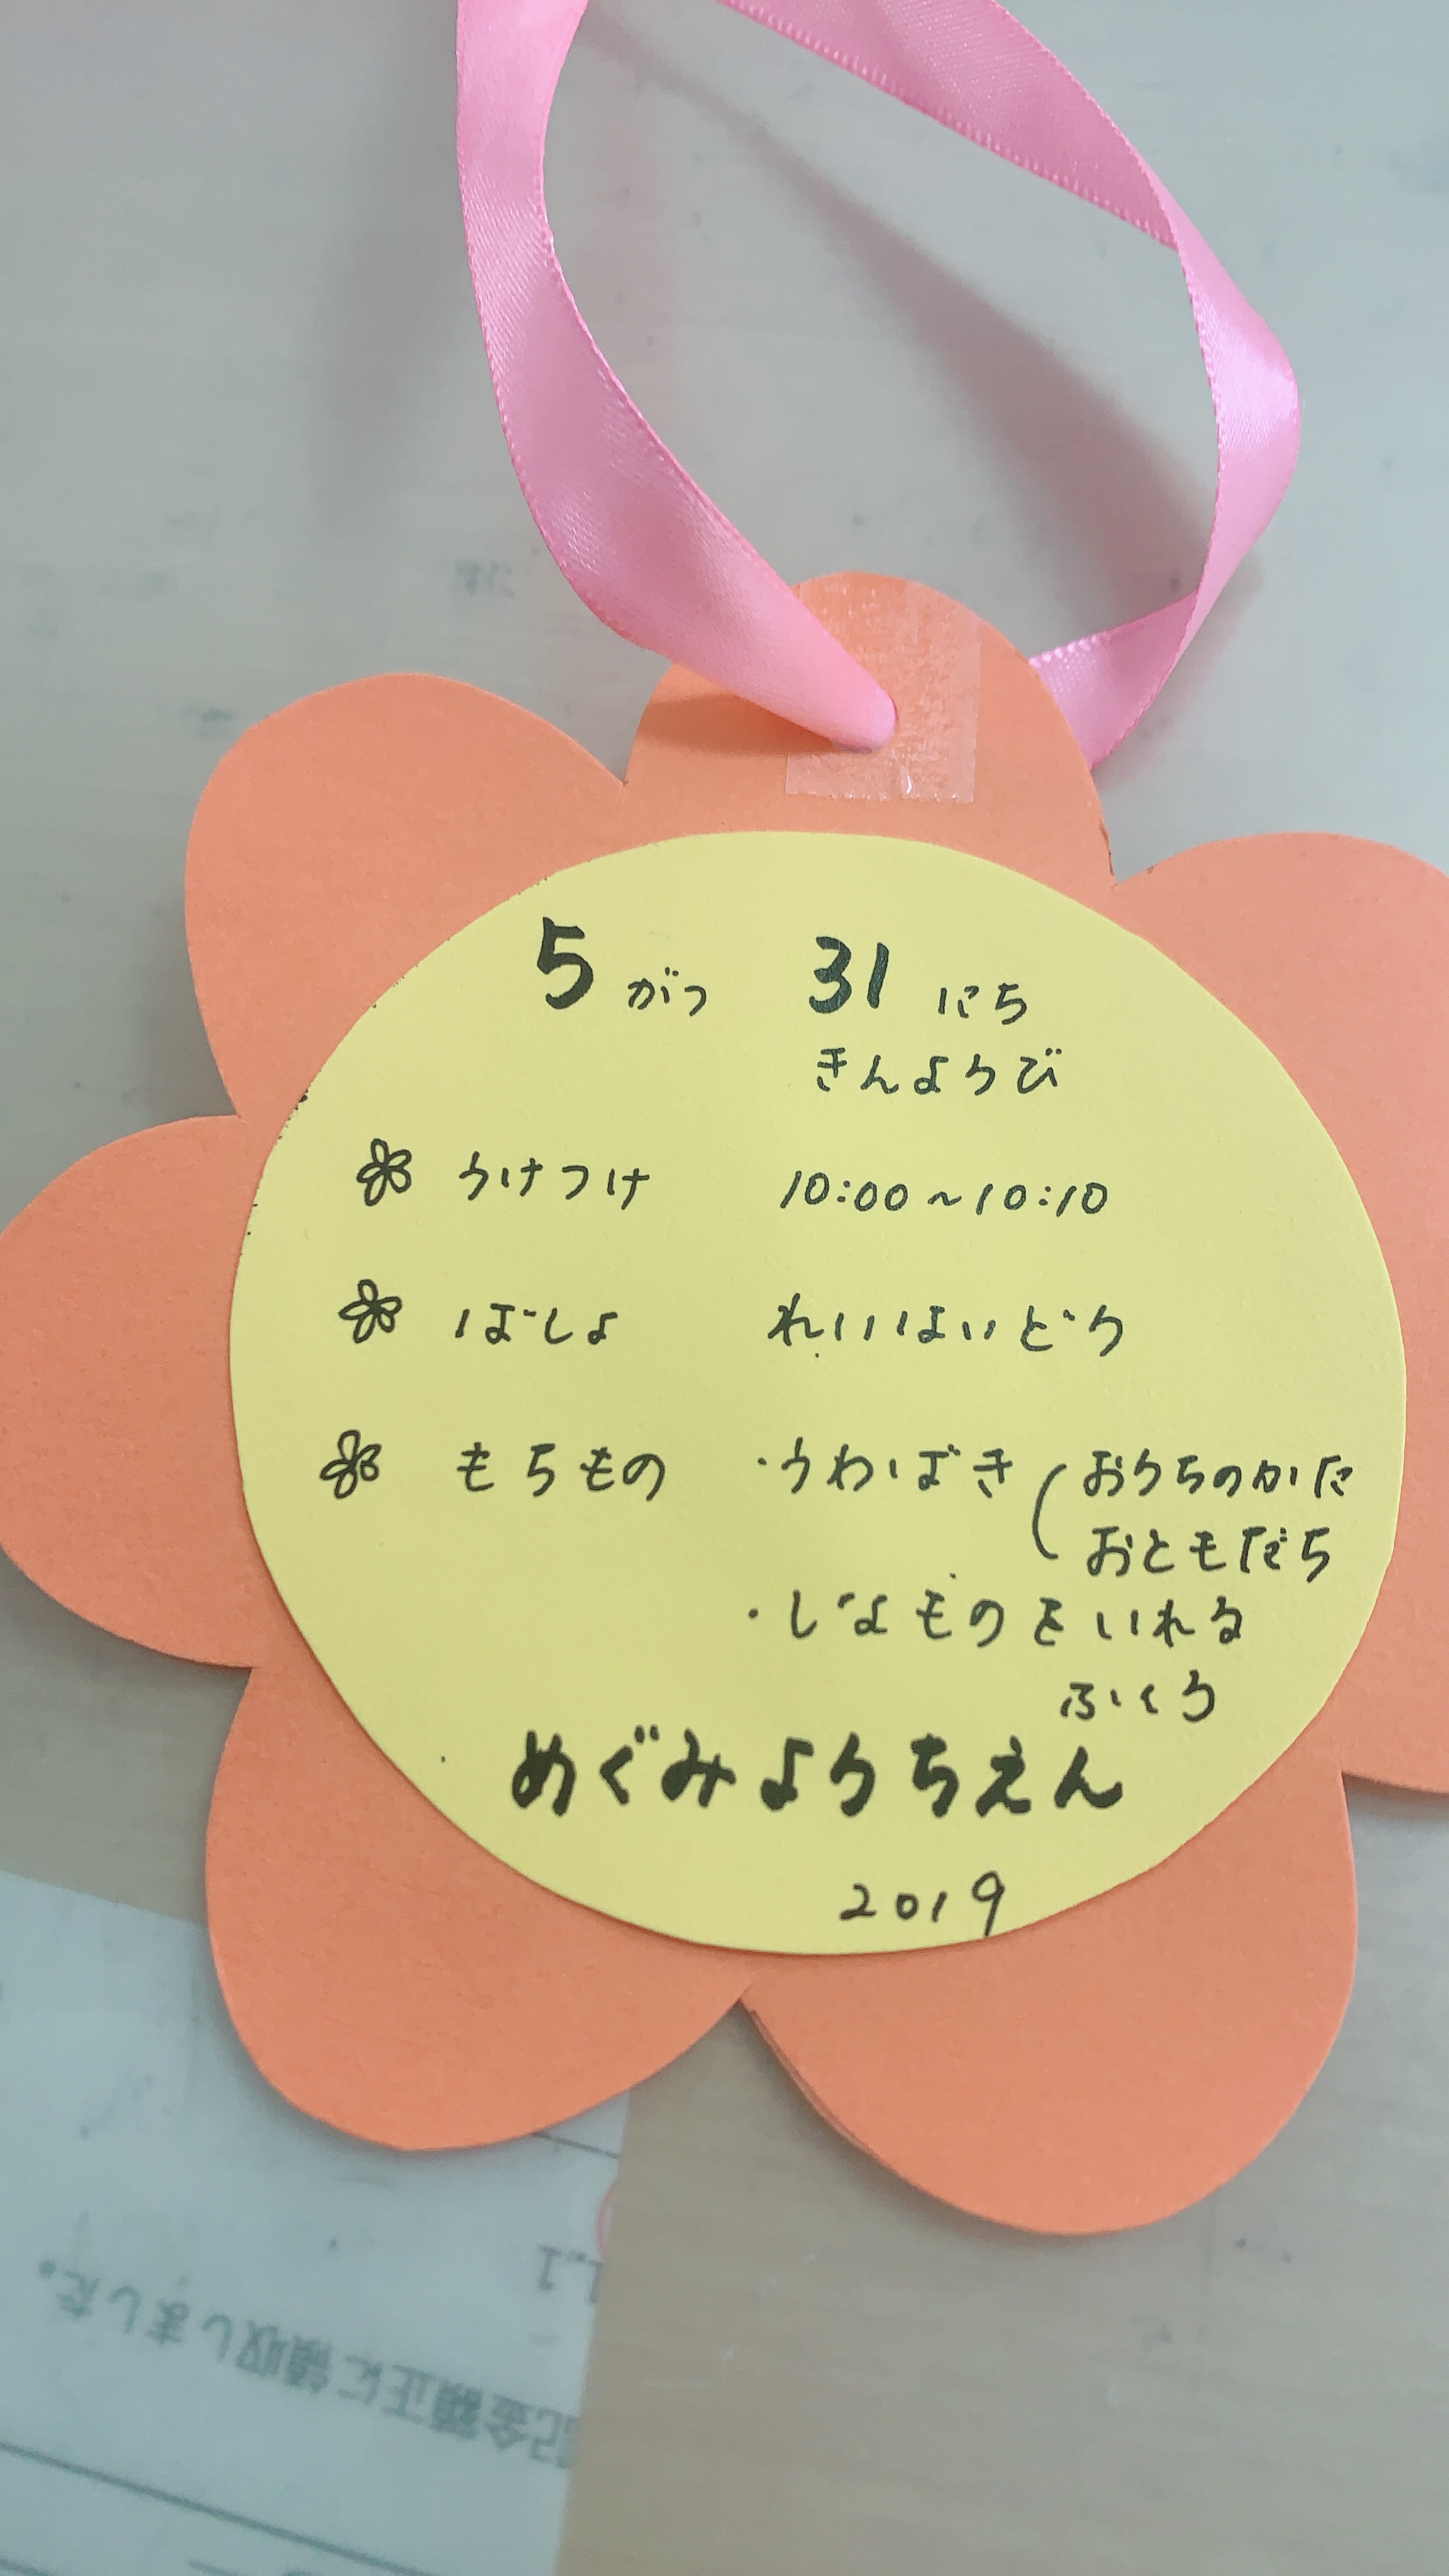 5がつ 31にち
きんようび
うけつけ 10:00~10:10
ばしょ れいはいどう
もちもの ・うわばき(おうちのかた
おともだち
・しなものをいれる
ふくろ
めぐみようちえん
2019
1.1
記金額正に領収しました。